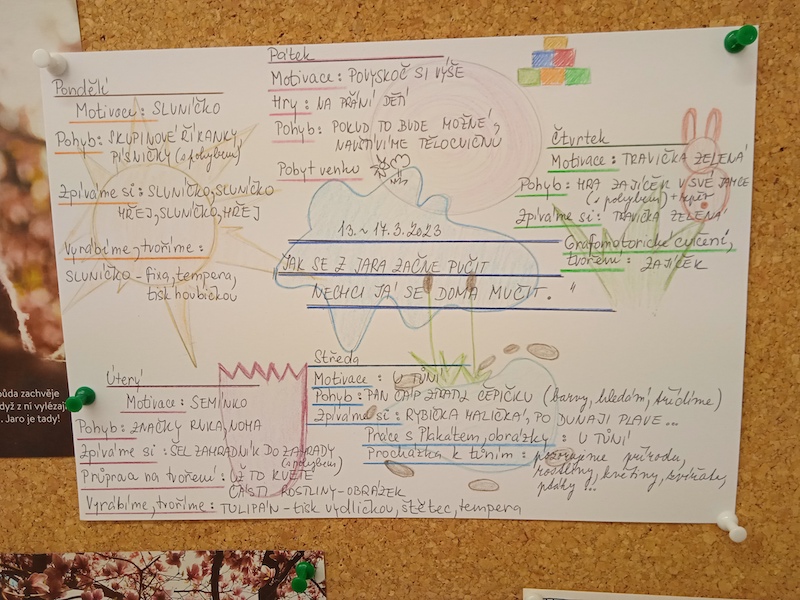 Pondělí
Motivace: SLUNÍČKO
Pohyb: SKUPINOVÉ ŘÍKANKY,
PÍSNIČKY (s pohybem)
Zpíváme si: SLUNÍČKO, SLUNÍČKO
HŘEJ, SLUNÍČKO, HŘEJ
Vyrábíme, tvoříme:
SLUNÍČKO – fixa, tempera,
tisk houbičkou
Pátek
Motivace: POVYSKOČ SI VÝŠE
Hry: NA PŘÁNÍ DĚTÍ
Pohyb: POKUD TO BUDE MOŽNÉ,
NAVŠTÍVÍME TĚLOCVIČNU
Pobyt venku
Čtvrtek
Motivace: TRAVIČKA ZELENÁ
Pohyb: HRA ZAJÍČEK V SVÉ JAMCE
(s pohybem)
Zpíváme si: TRAVIČKA ZELENÁ
Grafomotorické cvičení,
tvoření: ZAJÍČEK
13. ~ 17. 3. 2023
JAK SE Z JARA ZAČNE PUČIT
NECHCI JÁ SE DOMA MUČIT. "
Úterý
Motivace: SEMÍNKO
Pohyb: ZNAČKY RUKA, NOHA
Zpíváme si: SEL ZAHRADNÍK DO ZAHRADY
(s pohybem)
Průprava na tvoření: UŽ TO KVETE
ČÁSTI ROSTLINY – OBRÁZEK
Vyrábíme, tvoříme: TULIPÁN – tisk vydličkou, štětec, tempera
Středa
Motivace: U TŮNÍ
Pohyb: PAN ČÁP ZTRATIL ČEPIČKU (barvy, hledání, třídíme)
Zpíváme si: RYBIČKA MALIČKÁ, PO DUNAJI PLAVE...
Práce s Plakátem, obrázky: U TŮNÍ
Procházka k tůním: pozorujeme přírodu,
rostliny, květiny, zvířata,
ptáky ...
půda zachvěje
dyž z ní vylézají
. Jaro je tady!